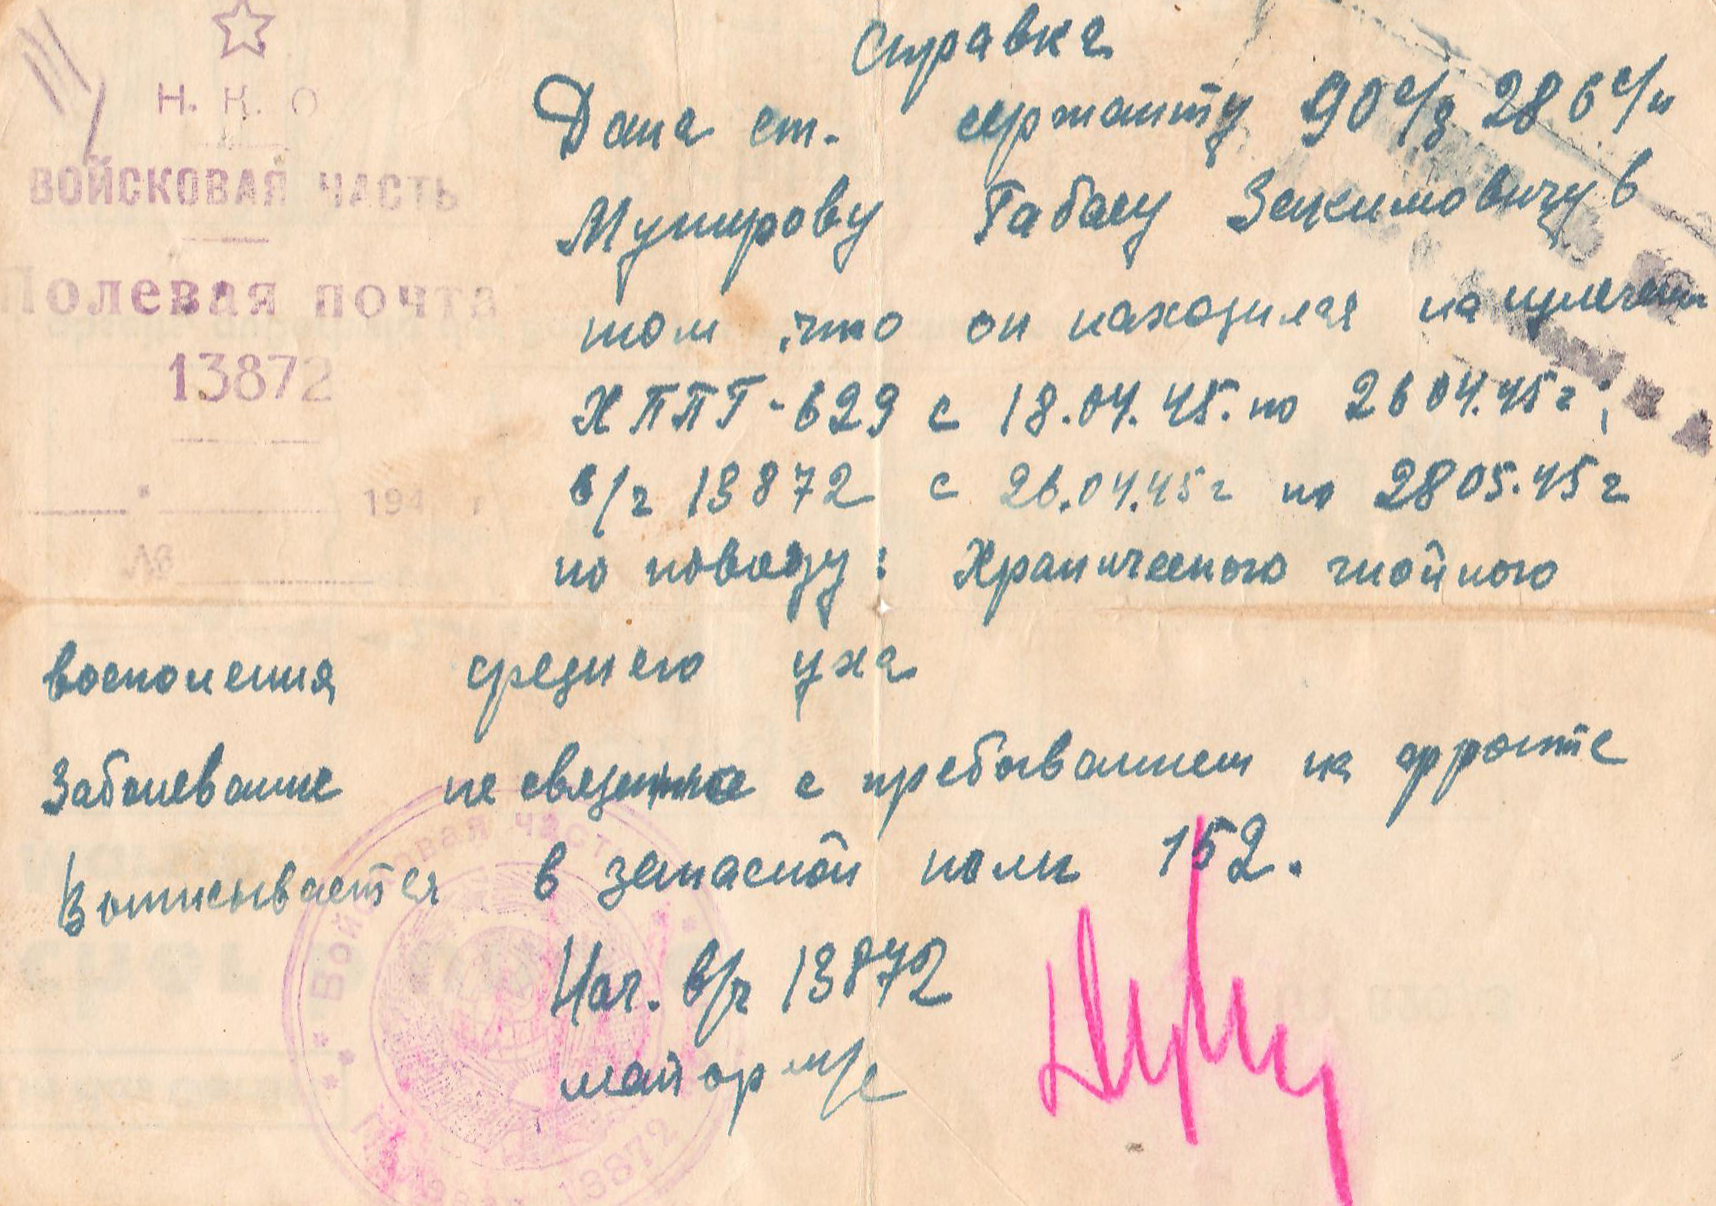 Н. К. О
ВОЙСКОВАЯ ЧАСТЬ
Полевая почта
13872
194 г
№
Справка
Дана ст. сержанту 90 с/з 286 с/п
Мунирову Габасу Закимовичу в
том, что он находился на излечении
ХППГ-629 с 18.04.45. по 26 04.45г;
в/ч 13872 с 26.04.45г по 28 05.45г
по поводу: Хранического гнойного
восполения среднего уха
Заболевание не связанно с пребыванием на фронте
Выписывается в запасной полк 152.
Нач. в/ч 13872
майор м/с
Войсковая часть
Полевая 13872